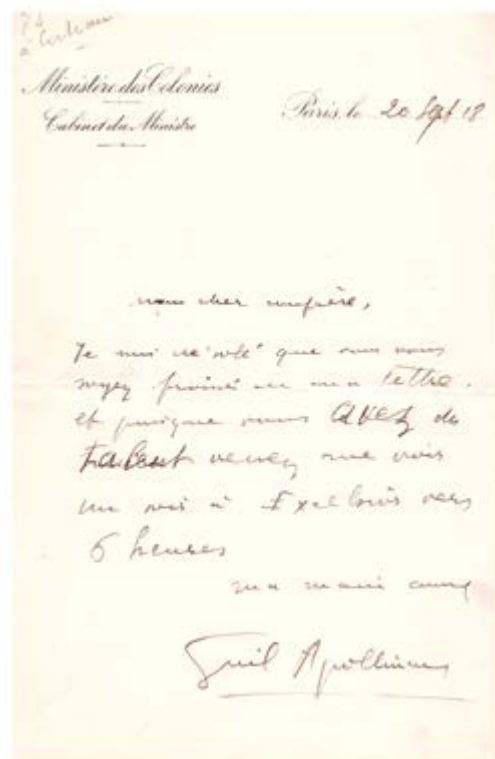 à
Ministère des Colonies
Cabinet du Ministre
Paris, le 20 Sept 18
mon cher confrère,
Je suis désolé que vous vous
soyez froissé de ma lettre.
et puisque vous avez du
talent venez me voir
un soir à Excelsior vers
6 heures
ma main amie
Guil Apollinaire